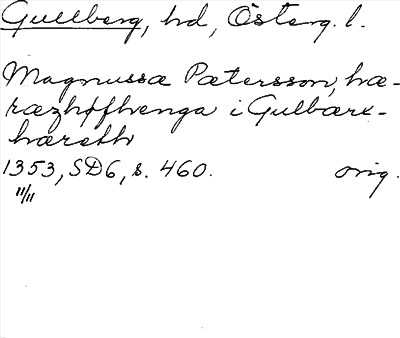 Gullberg, hd, Österg. l.
Magnussa Pætersson, hæ-
ræzhøfhenga i Gulbærx-
hæreth
1353, SD6, s. 460. orig.
11/11